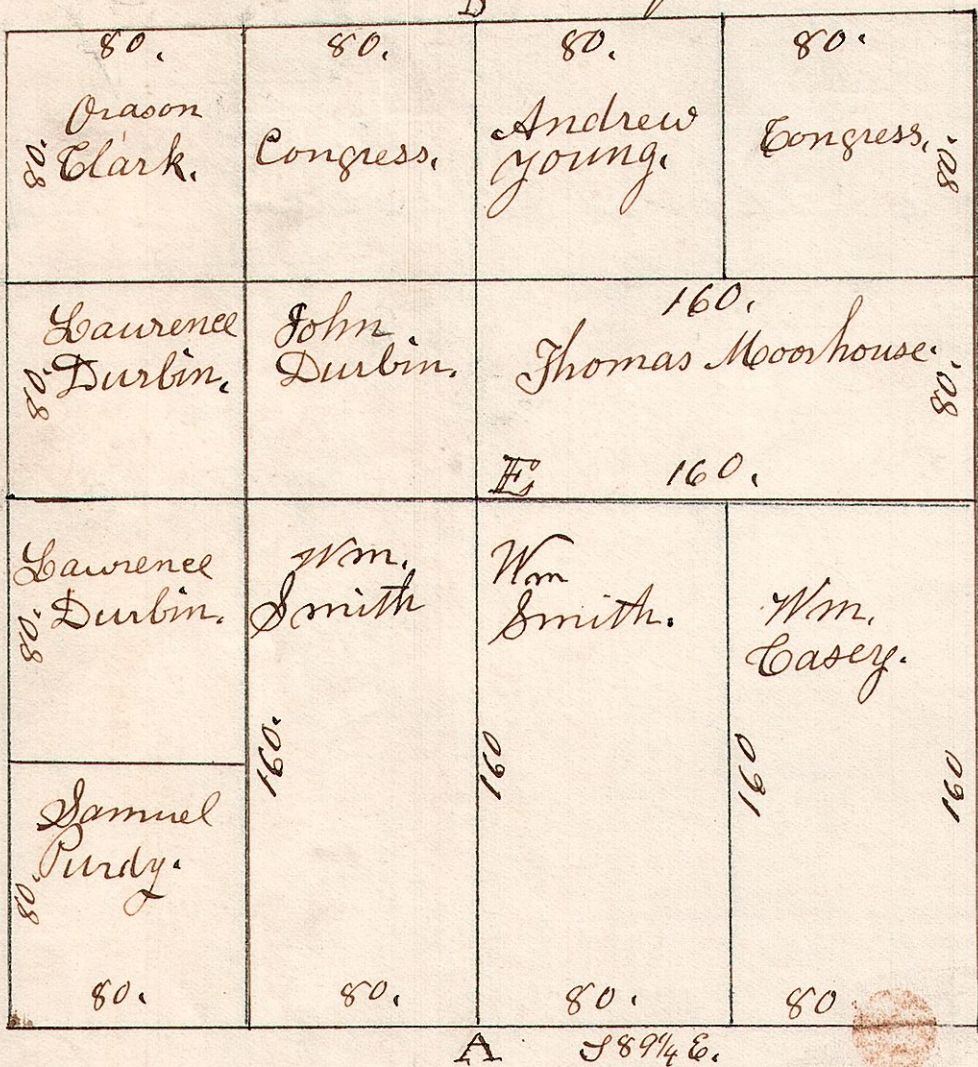 B
80.
80.
80.
80.
Orason
Clark.
80.
Congress.
Andrew
Young.
Congress.
80.
Laurence
Durbin.
80.
John
Durbin.
160.
Thomas Moorhouse.
80.
E
160.
Laurence
Durbin.
80.
Wm.
Smith
160.
Wm
Smith.
160
Wm.
Casey.
160
160
Samuel
Purdy.
80.
80.
80.
80.
80
A
S 89¼ E.